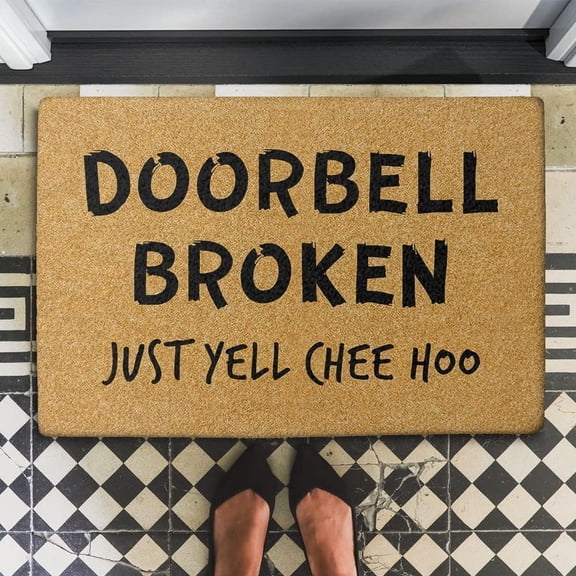 DOORBELL
BROKEN
JUST YELL CHEE HOO